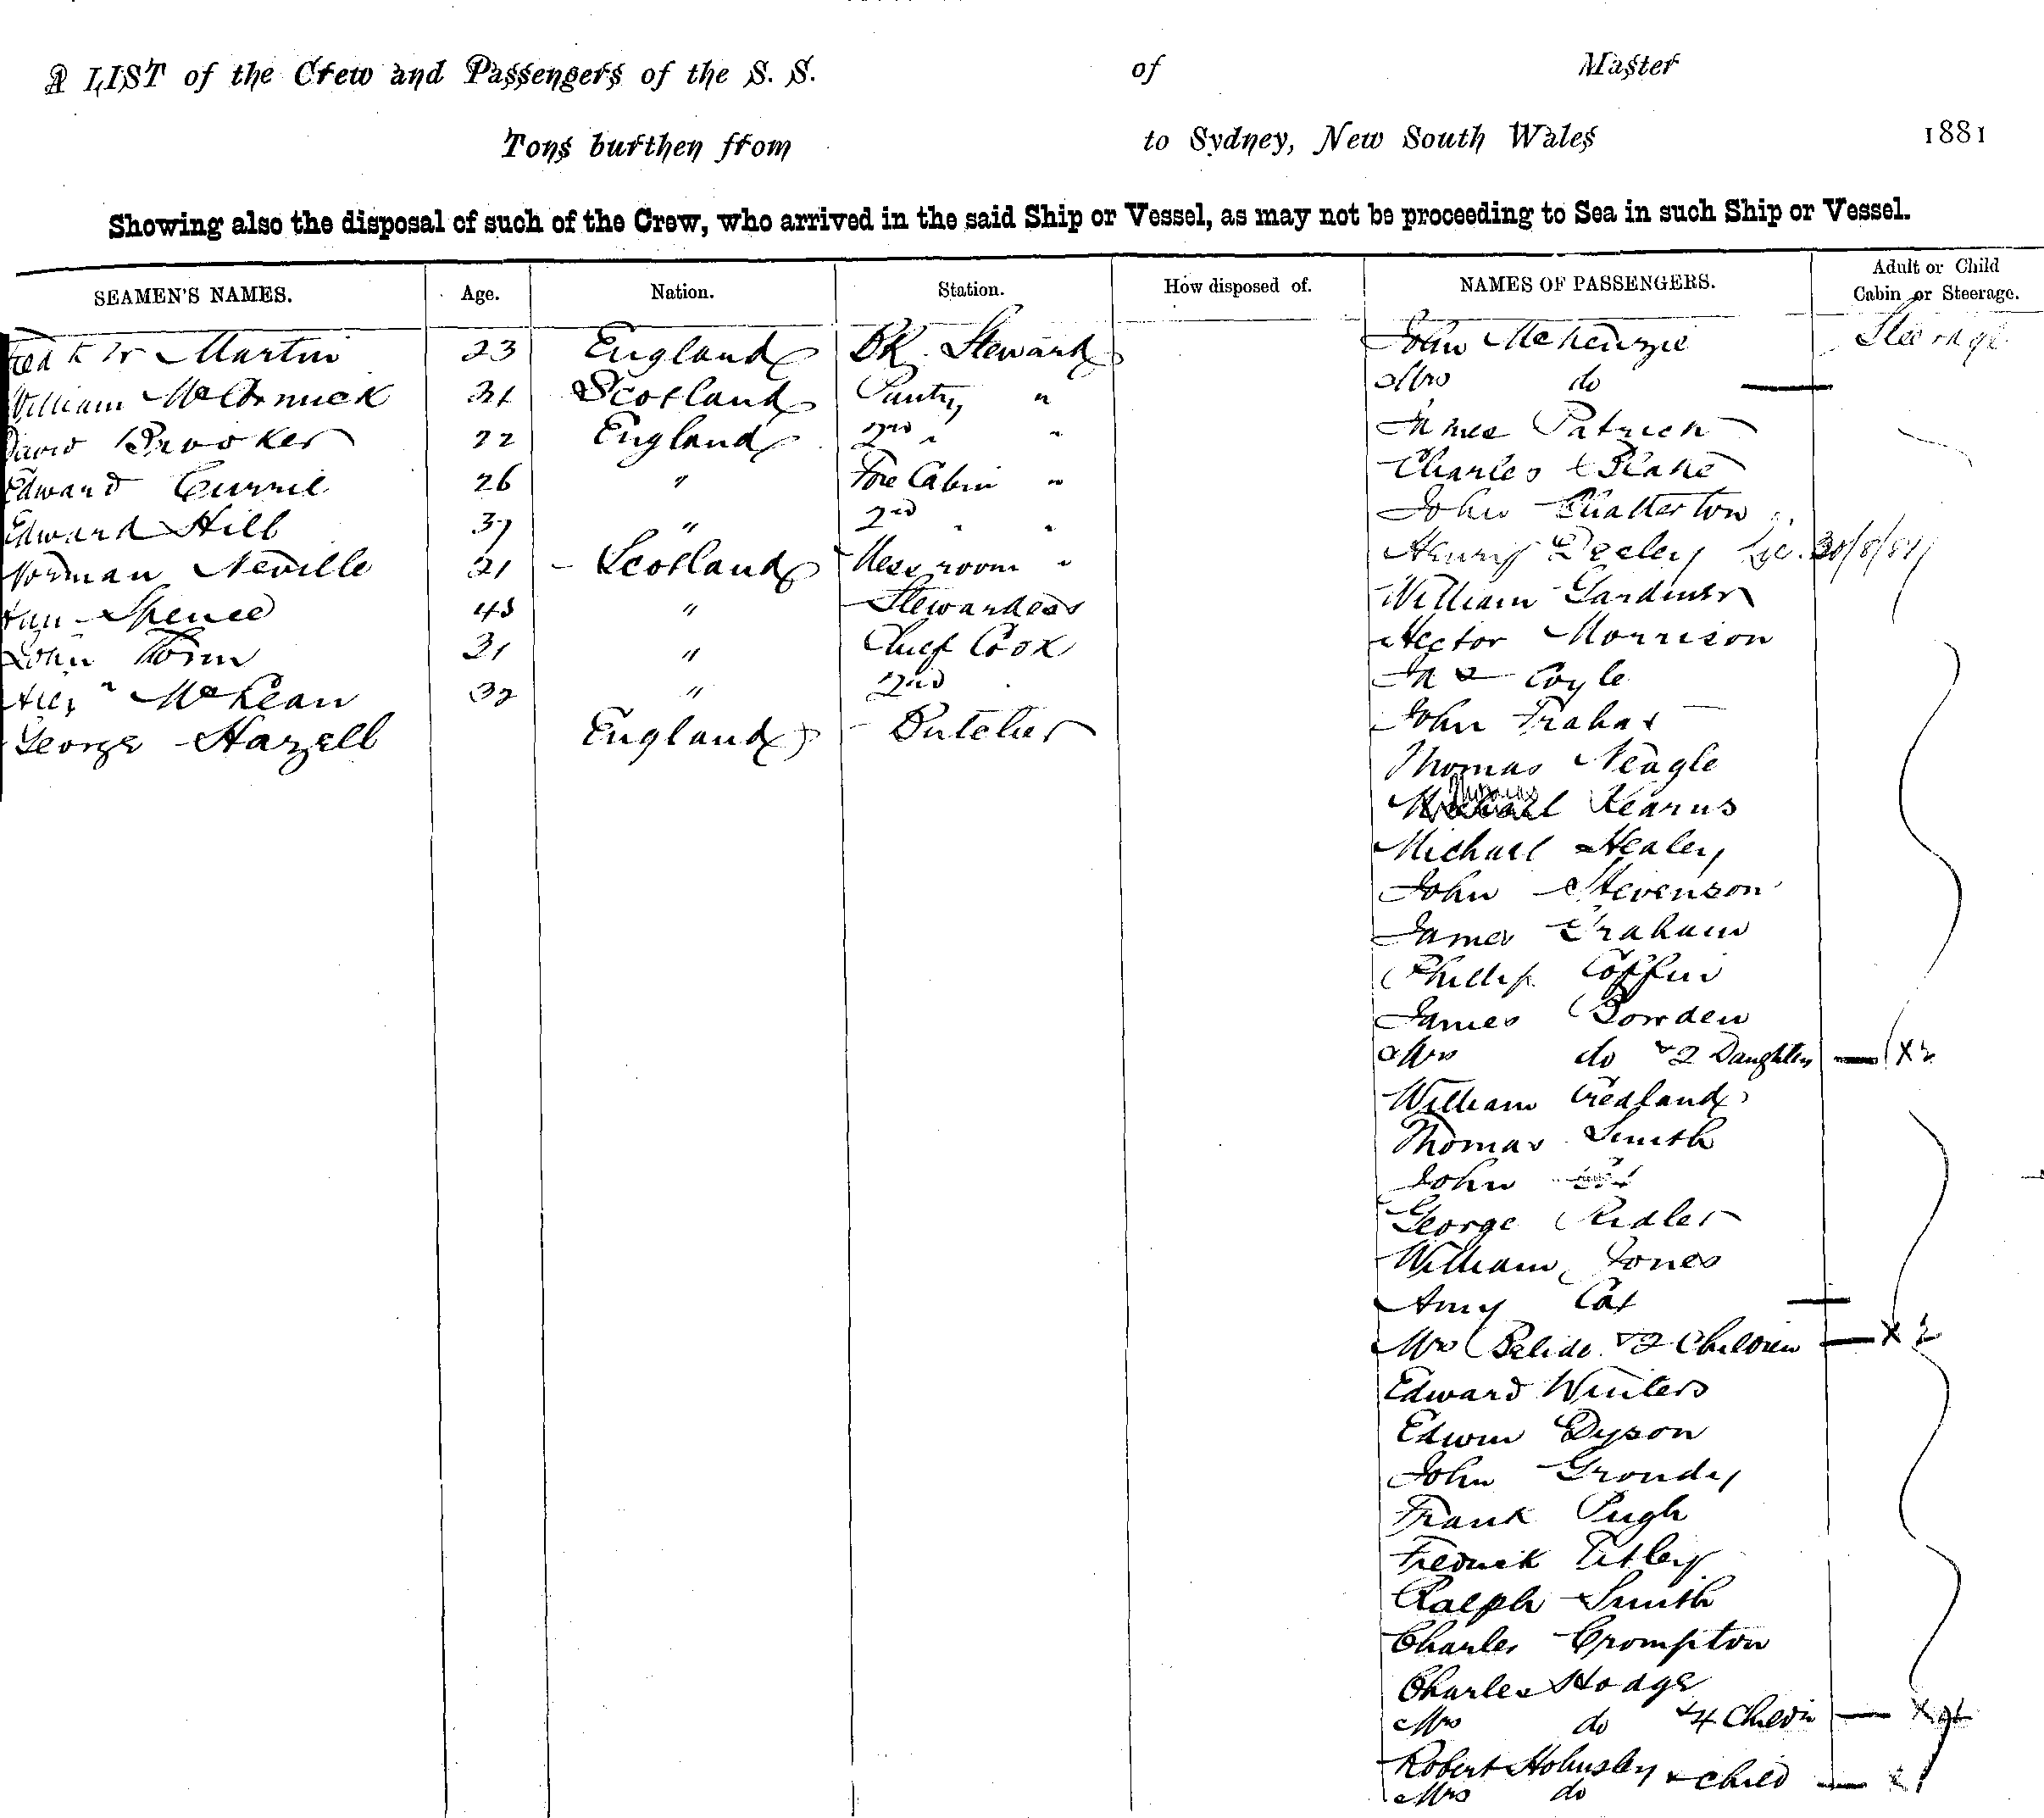 A LIST of the Crew and Passengers of the S. S. of Master
Tons burthen from to Sydney, New South Wales 1881
Showing also the disposal of such of the Crew, who arrived in the said Ship or Vessel, as may not be proceeding to Sea in such Ship or Vessel.
SEAMEN'S NAMES. Age. Nation. Station. How disposed of. NAMES OF PASSENGERS. Adult or Child Cabin or Steerage.
Martin 23 England BK. Steward John McKenzie Steerage
William McCormick 31 Scotland Pantry " Mrs do —
David Brooker 22 England 2nd " " James Patrick
Edward Currie 26 " Fore Cabin " Charles Blake
Edward Hill 37 " 2nd " " John Chatterton
Norman Neville 21 - Scotland Mess room " Henry Deeley 30/8/81
Spence 43 " Stewardess William Gardiner
John 31 " Chief Cook Hector Morrison
Alexr McLean 32 " 2nd Coyle
George Hazell England Butcher John
Thomas Neagle
Thomas Kearns
Michael Healey
John Stevenson
James Graham
Phillip Coffin
James Bowden
Mrs do & 2 Daughters — X 2
William
Thomas Smith
John
George Ridler
William Jones
Amy Cox —
Mrs & 2 Children — X 2
Edward Winters
Edwin Dyson
John Grondy
Frank Pugh
Fredrick Titley
Ralph Smith
Charles Crompton
Charles Hodge
Mrs do & 4 — X 4
Robert & child — X 1
Mrs do